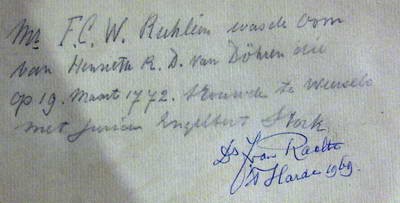 Mr F.C.W. Ruhlein was de oom
van Henneth R. D. van Döhren die
op 19. Maart 1772. trouwde te Weerselo
met Jurien Engelbert Stork
Ds J van Raalte
't Harde 1969.